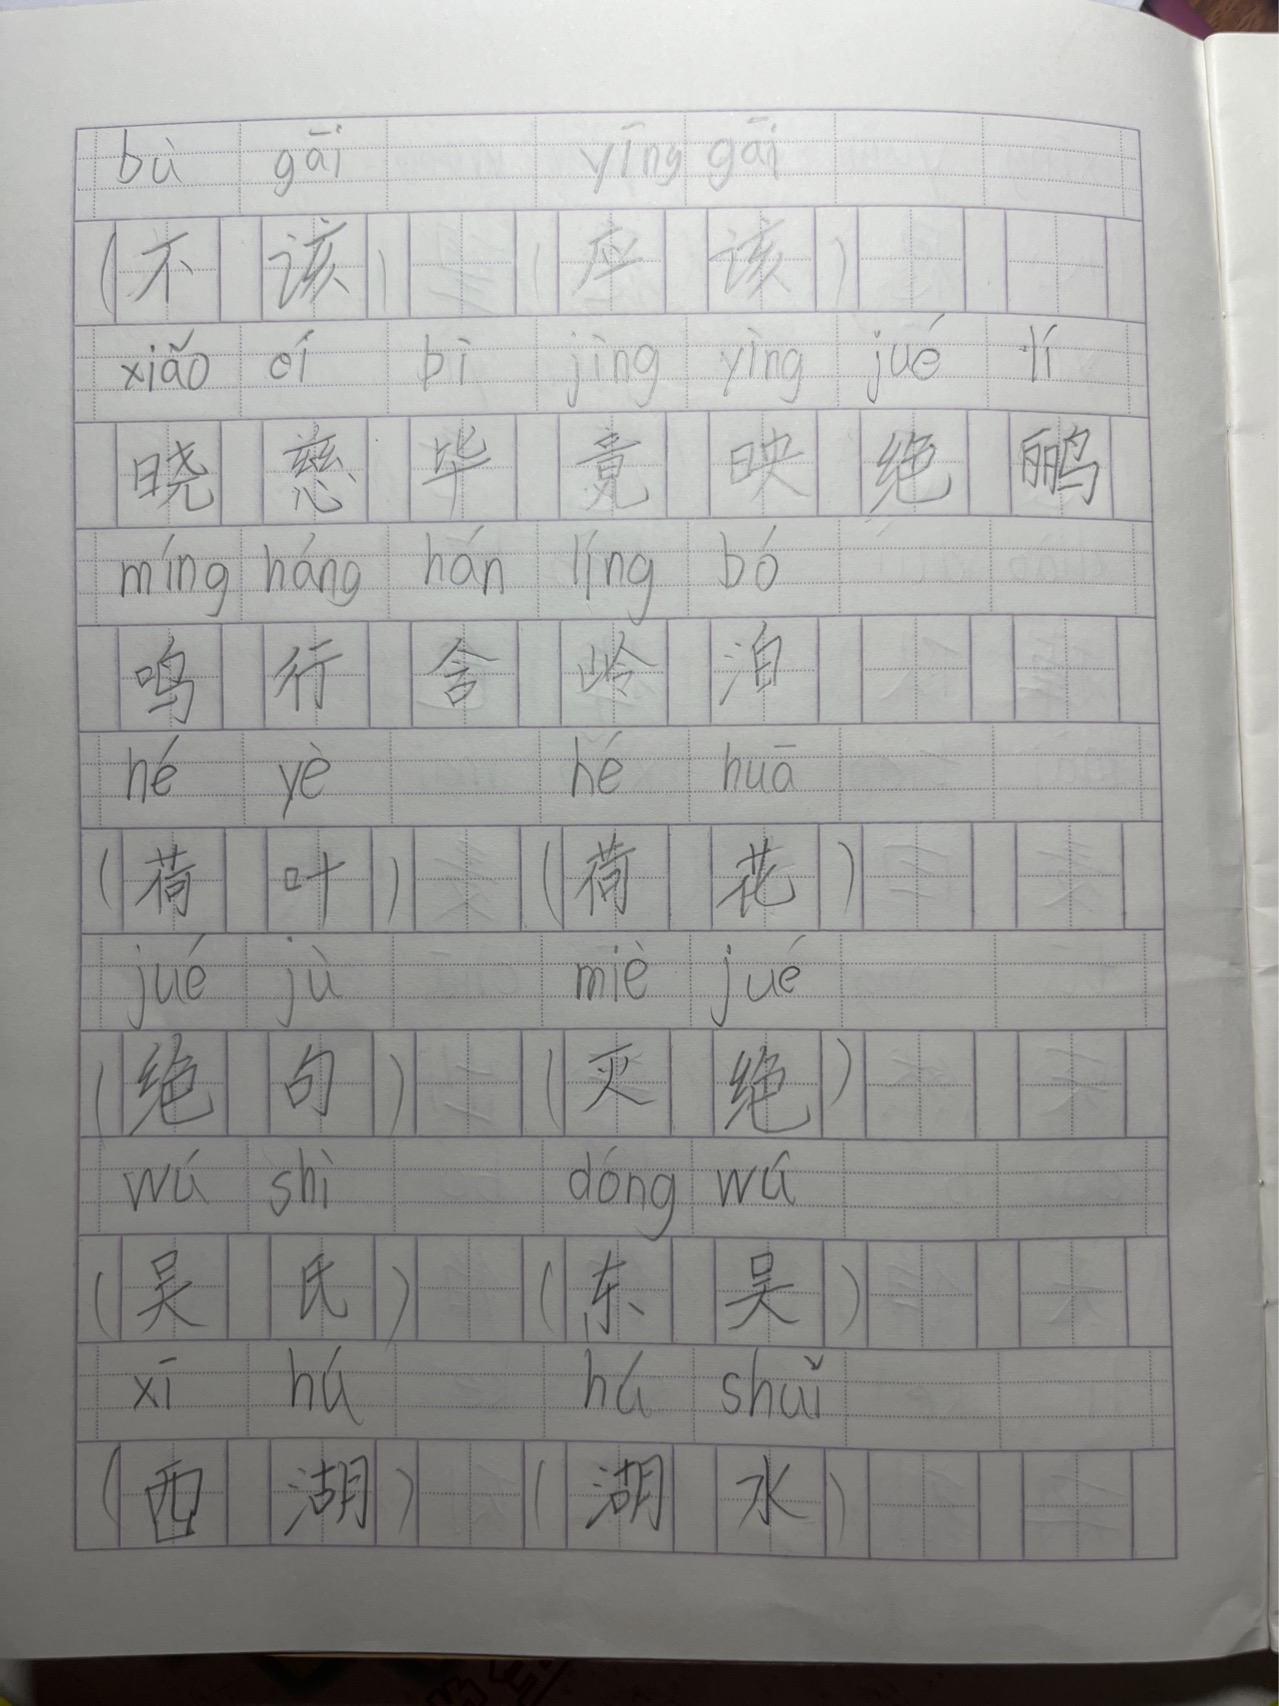 bù gāi yīng gāi
(不该) (应该)
xiǎo cí bì jìng yìng jué lí
晓慈毕竟映绝鹂
míng háng hán lǐng bó
鸣行含岭泊
hé yè hé huā
(荷叶) (荷花)
jué jù miè jué
(绝句) (灭绝)
wú shì dōng wú
(吴氏) (东吴)
xī hú hú shuǐ
(西湖) (湖水)